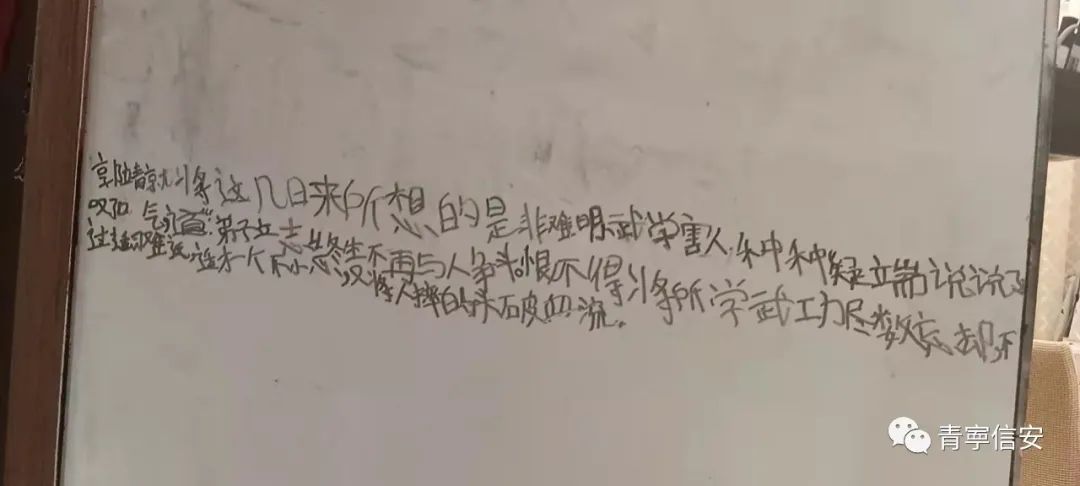 郭靖就将这几日来所想的是非难明武学害人种种疑端说说
叹口气道"弟子立志终生不再与人争斗。恨不得将所学武功尽数忘却,不
过难返,适才一个不小心又将人摔的头破血流。
青寧信安